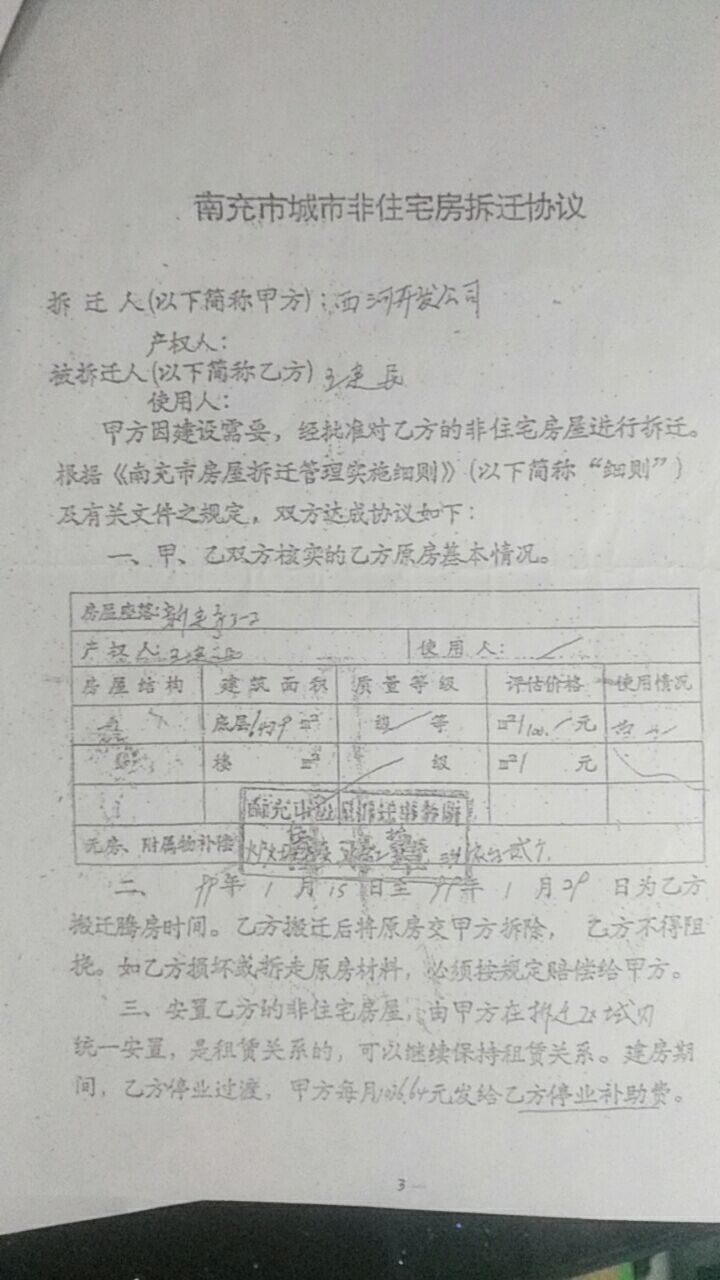 南充市城市非住宅房拆迁协议
拆迁人(以下简称甲方):西河开发公司
产权人:
被拆迁人(以下简称乙方)
使用人:
甲方因建设需要,经批准对乙方的非住宅房屋进行拆迁。
根据《南充市房屋拆迁管理实施细则》(以下简称“细则”)
及有关文件之规定,双方达成协议如下:
一、甲、乙双方核实的乙方原房基本情况。
房屋座落:
产权人: 使用人:
房屋结构 建筑面积 质量等级 评估价格 使用情况
底层 m² 级 等 m²/ 元
楼 m² 级 m²/ 元
无房、附属物补偿
二、99年1月15日至99年1月29日为乙方
搬迁腾房时间。乙方搬迁后将原房交甲方拆除, 乙方不得阻
挠。如乙方损坏或拆走原房材料,必须按规定赔偿给甲方。
三、安置乙方的非住宅房屋,由甲方在拆迁区域内
统一安置,是租赁关系的,可以继续保持租赁关系。建房期
间,乙方停业过渡,甲方每月1036.64元发给乙方停业补助费。
3